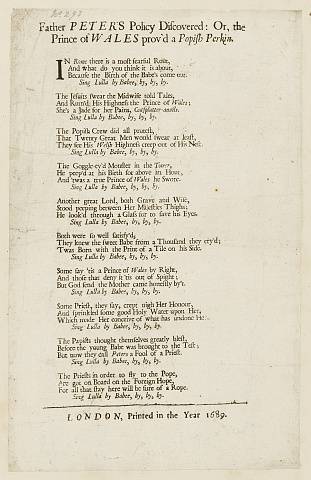 No 293
Father PETER'S Policy Discovered: Or, the
Prince of WALES prov'd a Popish Perkin.
IN Rome there is a most fearful Rout,
And what do you think it is about,
Because the Birth of the Babe's come out.
Sing Lulla by Babee, by, by, by.
The Jesuits swear the Midwife told Tales,
And Ruin'd His Highness the Prince of Wales;
She's a Jade for her Pains, Cutsplutter-anails.
Sing Lulla by Babee, by, by, by.
The Popish Crew did all protest,
That Twenty Great Men would swear at least,
They see His Welsh Highness creep out of His Nest.
Sing Lulla by Babee, by, by, by.
The Goggle-ey'd Monster in the Tower,
He peep'd at his Birth for above an Hour,
And 'twas a true Prince of Wales he Swore.
Sing Lulla by Babee, by, by, by.
Another great Lord, both Grave and Wise,
Stood peeping between Her Majesties Thighs;
He look'd through a Glass for to save his Eyes.
Sing Lulla by Babee, by, by, by.
Both were so well satisfy'd,
They knew the sweet Babe from a Thousand they cry'd;
'Twas Born with the Print of a Tile on his Side.
Sing Lulla by Babee, by, by, by.
Some say 'tis a Prince of Wales by Right,
And those that deny it 'tis out of Spight;
But God send the Mother came honestly by't.
Sing Lulla by Babee, by, by, by.
Some Priest, they say, crept nigh Her Honour,
And sprinkled some good Holy Water upon Her,
Which made Her conceive of what has undone Her.
Sing Lulla by Babee, by, by, by.
The Papists thought themselves greatly blest,
Before the young Babe was brought to the Test;
But now they call Peters a Fool of a Priest.
Sing Lulla by Babee, by, by, by.
The Priests in order to fly to the Pope,
Are got on Board on the Foreign Hope,
For all that stay here will be sure of a Rope.
Sing Lulla by Babee, by, by, by.
LONDON, Printed in the Year 1689.